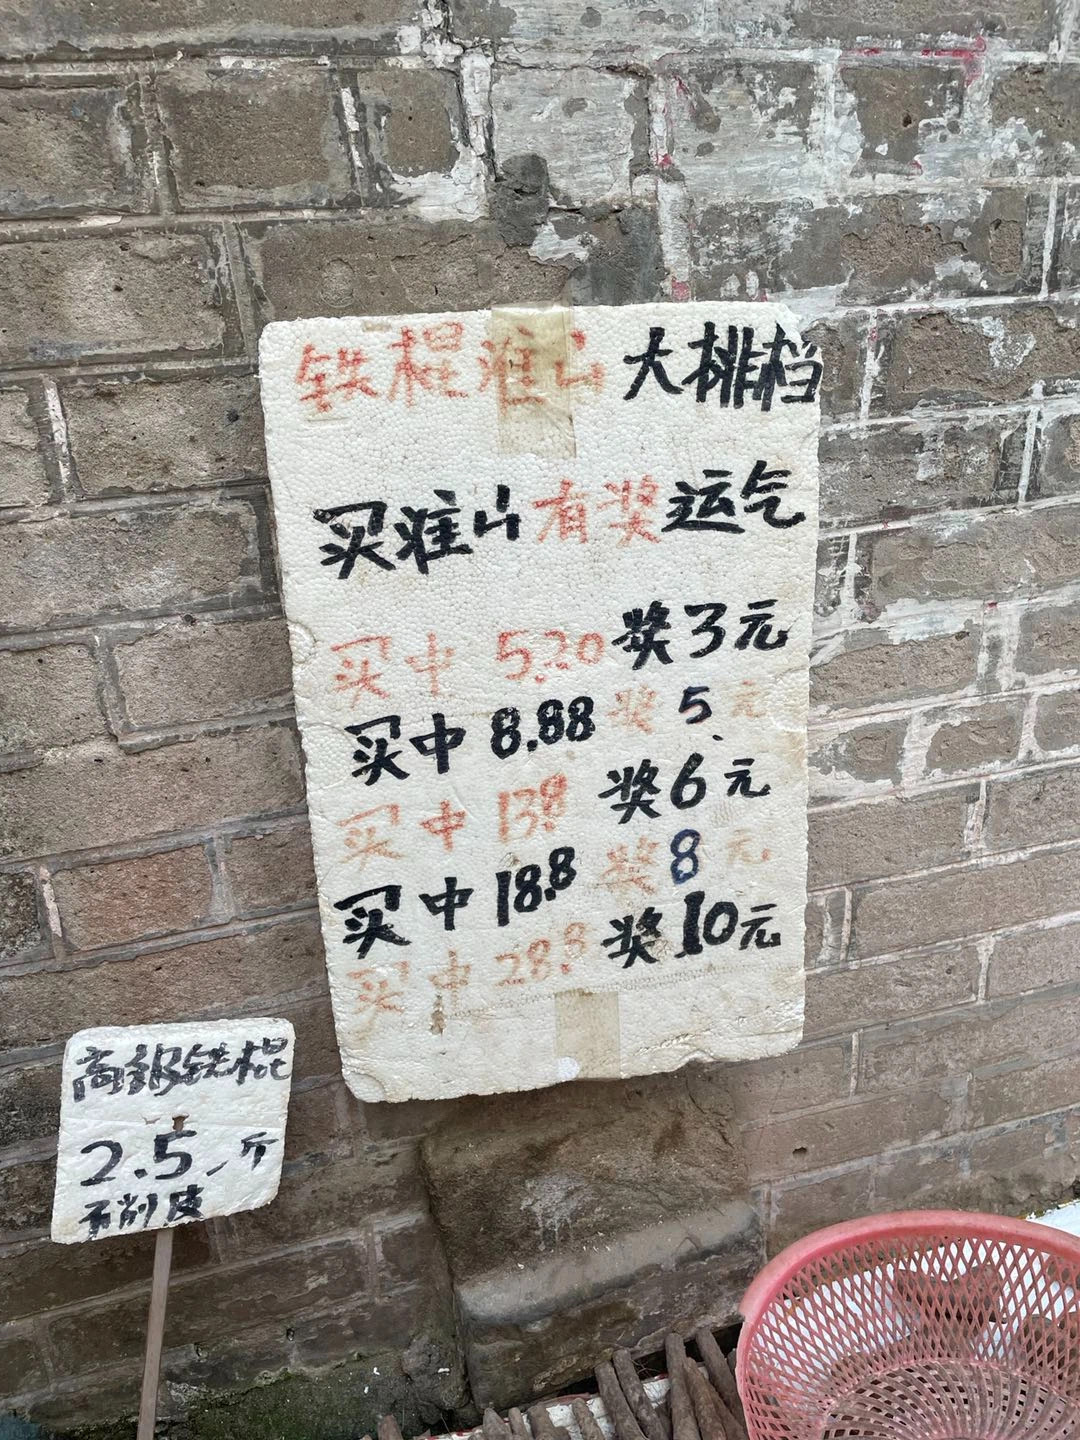 铁棍淮山大排档
买淮山有奖运气
买中 5.20 奖3元
买中 8.88 奖5元
买中 13.8 奖6元
买中 18.8 奖8元
买中 28.8 奖10元
高级铁棍
2.5一斤
不削皮